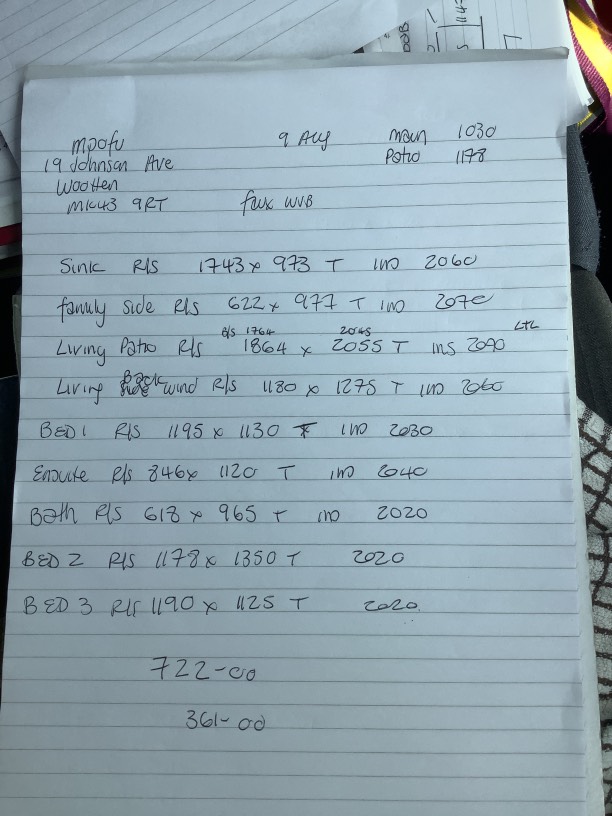 Mpofu 9 Aug main 1030
19 Johnson Ave Patio 1178
Wootten
MK43 9RT faux WVB
Sink R/S 1743 x 973 T 2060
family side R/S 622 x 977 T 2070
R/S 1764 2045 LTL
Living Patio R/S 1864 x 2055 T ins 2090
Living Back wind R/S 1180 x 1275 T 2060
BED 1 R/S 1195 x 1130 T 2030
Ensuite R/S 846 x 1120 T 2040
Bath R/S 618 x 965 T 2020
BED 2 R/S 1178 x 1350 T 2020
BED 3 R/S 1190 x 1125 T 2020
722-00
361-00